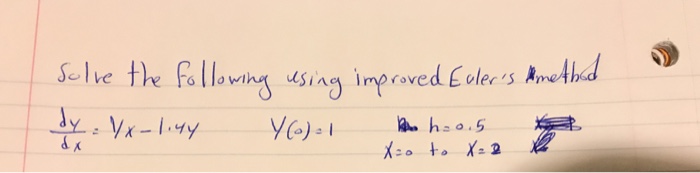 Solve the following using improved Euler's method
dy/dx = Yx - 1.4y Y(0) = 1 h = 0.5
x = 0 to x = 2